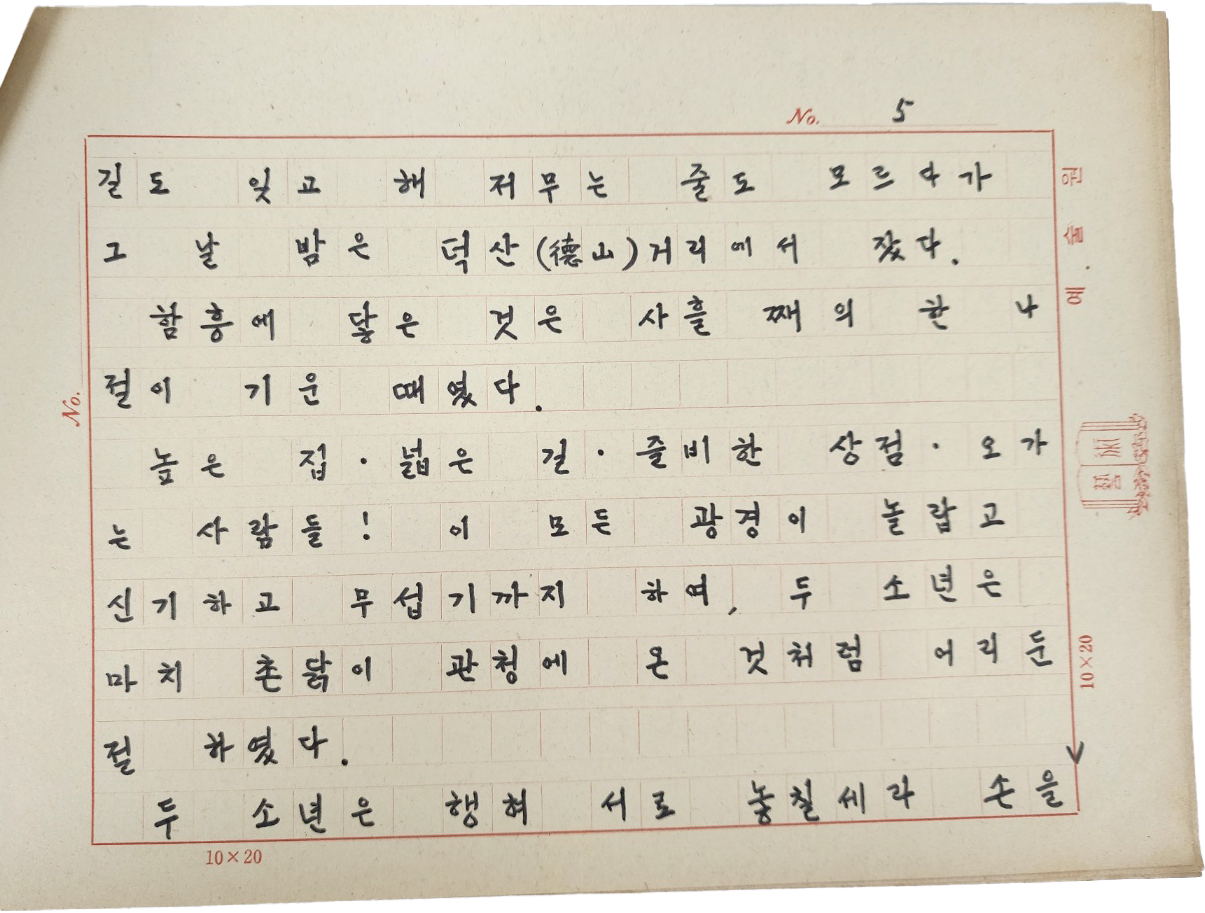 No. 5
길도 잊고 해 저무는 줄도 모르다가
그 날 밤은 덕산(德山)거리에서 잤다.
함흥에 닿은 것은 사흘 째의 한 나
절이 기운 때였다.
높은 집·넓은 길·즐비한 상점·오가
는 사람들! 이 모든 광경이 놀랍고
신기하고 무섭기까지 하여, 두 소년은
마치 촌닭이 관청에 온 것처럼 어리둔
절 하였다.
두 소년은 행혀 서로 놓칠세라 손을
10×20
No.
예술원
藝術
10×20